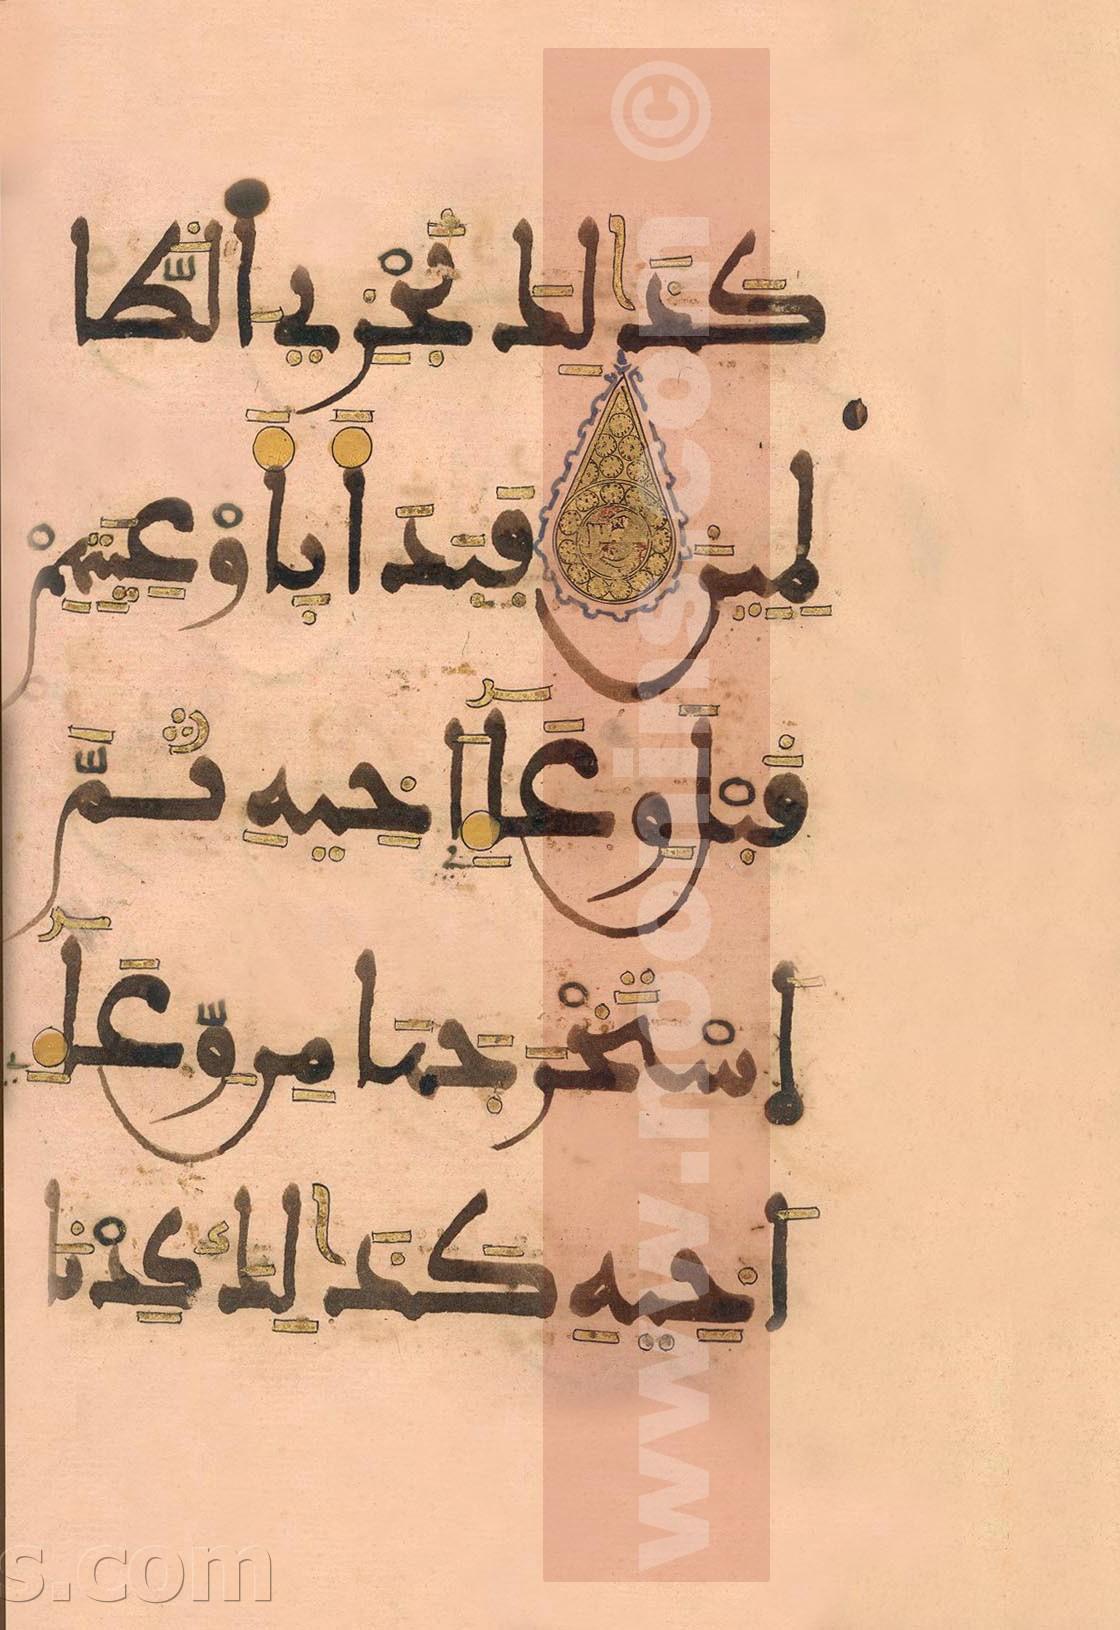 كَذَٰلِكَ نَجْزِي الظَّا
لِمِينَ فَبَدَأَ بِأَوْعِيَتِهِمْ
قَبْلَ وِعَاءِ أَخِيهِ ثُمَّ
اسْتَخْرَجَهَا مِن وِّعَاءِ
أَخِيهِ كَذَٰلِكَ كِدْنَا
s.com